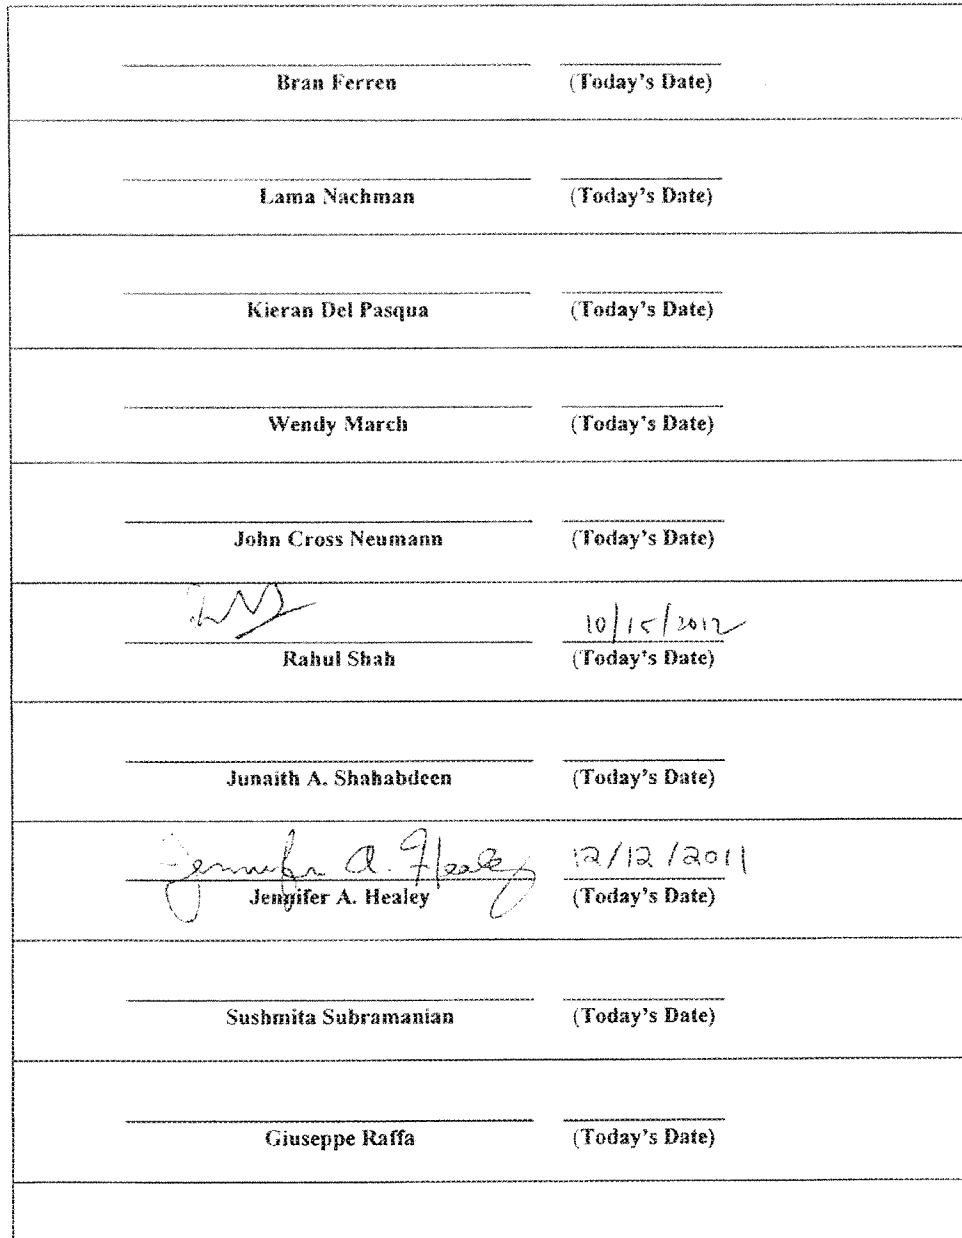 Bran Ferren (Today's Date)
Lama Nachman (Today's Date)
Kieran Del Pasqua (Today's Date)
Wendy March (Today's Date)
John Cross Neumann (Today's Date)
10/15/2012
Rahul Shah (Today's Date)
Junaith A. Shahabdeen (Today's Date)
Jennifer A. Healey 12/12/2011
Jennifer A. Healey (Today's Date)
Sushmita Subramanian (Today's Date)
Giuseppe Raffa (Today's Date)